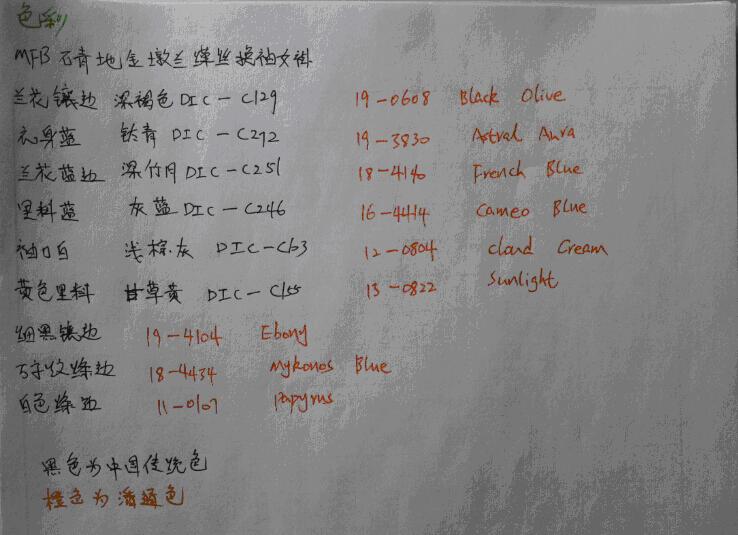 色彩
MFB 石青地金墩兰缂丝挽袖女褂
兰花镶边 深褐色 DIC-C129 19-0608 Black Olive
衣身蓝 钛青 DIC-C292 19-3830 Astral Aura
兰花蓝边 深竹月 DIC-C251 18-4140 French Blue
里料蓝 灰蓝 DIC-C246 16-4414 Cameo Blue
袖口白 浅棕灰 DIC-C63 12-0804 cloud Cream
黄色里料 甘草黄 DIC-C155 13-0822 Sunlight
细黑镶边 19-4104 Ebony
万字纹绦边 18-4434 Mykonos Blue
白色绦边 11-0107 Papyrus
黑色为中国传统色
橙色为潘通色